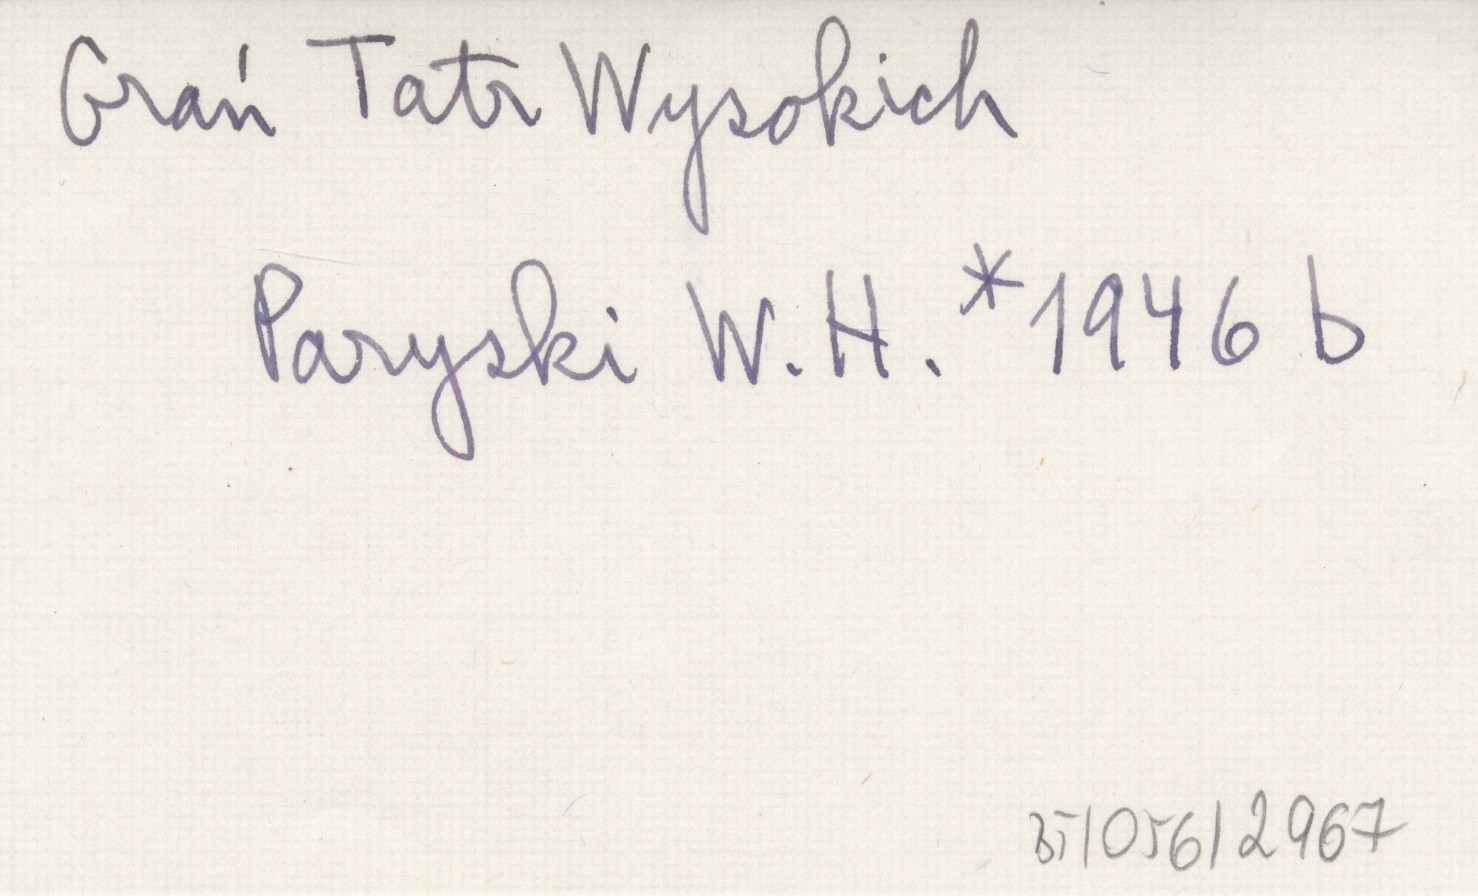 Grań Tatr Wysokich
Paryski W. H. *1946 b
BT/056/2967